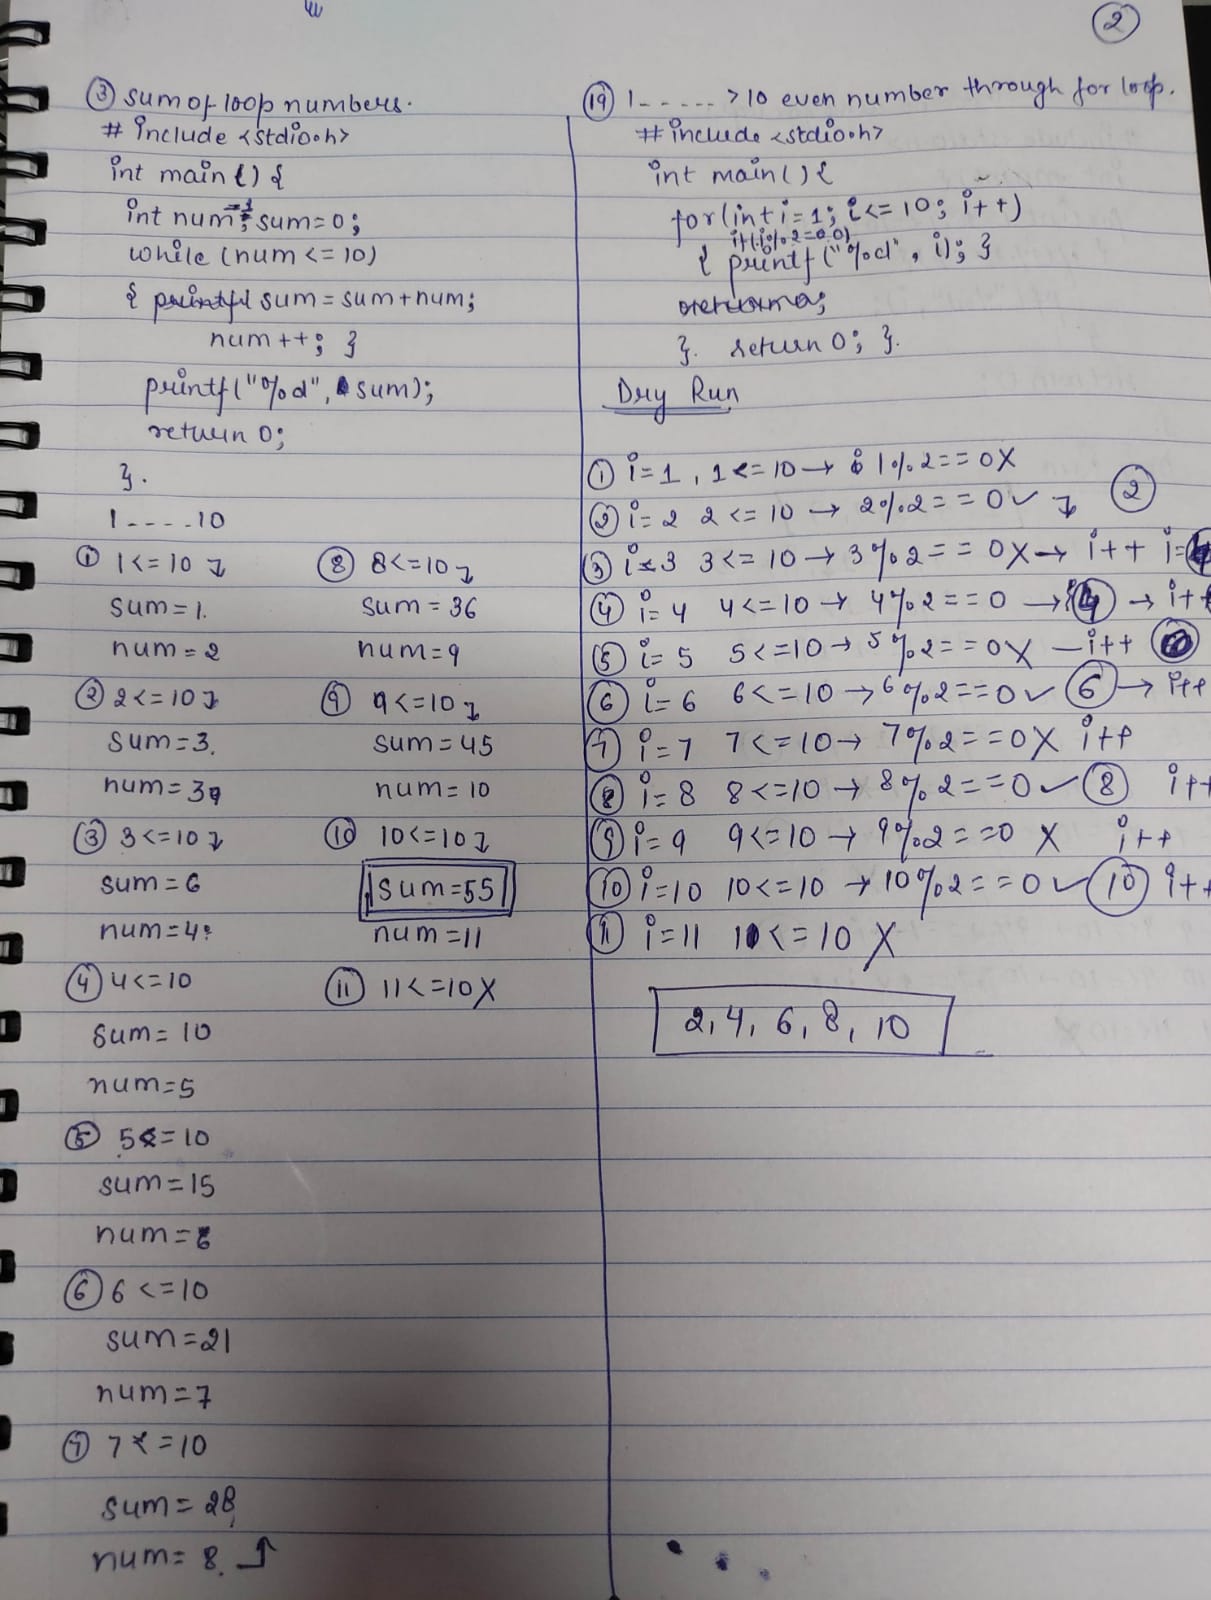 2
③ sum of loop numbers.
# include <stdio.h>
int main() {
int num=1; sum=0;
while (num <= 10)
{ printf( sum = sum + num;
num++; }
printf("%d", sum);
return 0;
}.
1-----10
① 1<=10
sum=1.
num=2
② 2<=10
sum=3.
num=3
③ 3<=10
sum=6
num=4
④ 4<=10
sum=10
num=5
⑤ 5<=10
sum=15
num=6
⑥ 6<=10
sum=21
num=7
⑦ 7<=10
sum=28
num=8.
⑧ 8<=10
sum=36
num=9
⑨ 9<=10
sum=45
num=10
⑩ 10<=10
sum=55
num=11
⑪ 11<=10X
⑲ 1-----> 10 even number through for loop.
# include <stdio.h>
int main() {
for(int i=1; i<=10; i++)
if(i%2==0)
{ printf("%d", i); }
}. return 0; }.
Dry Run
① i=1, 1<=10 → 1%2==0X
② i=2 2<=10 → 2%2==0✓ ②
③ i=3 3<=10 → 3%2==0X → i++ i=4
④ i=4 4<=10 → 4%2==0 → ④ → i++
⑤ i=5 5<=10 → 5%2==0X – i++
⑥ i=6 6<=10 → 6%2==0✓ ⑥ → i++
⑦ i=7 7<=10 → 7%2==0X i++
⑧ i=8 8<=10 → 8%2==0✓ ⑧ i++
⑨ i=9 9<=10 → 9%2==0 X i++
⑩ i=10 10<=10 → 10%2==0✓ ⑩ i++
⑪ i=11 11<=10 X
2, 4, 6, 8, 10